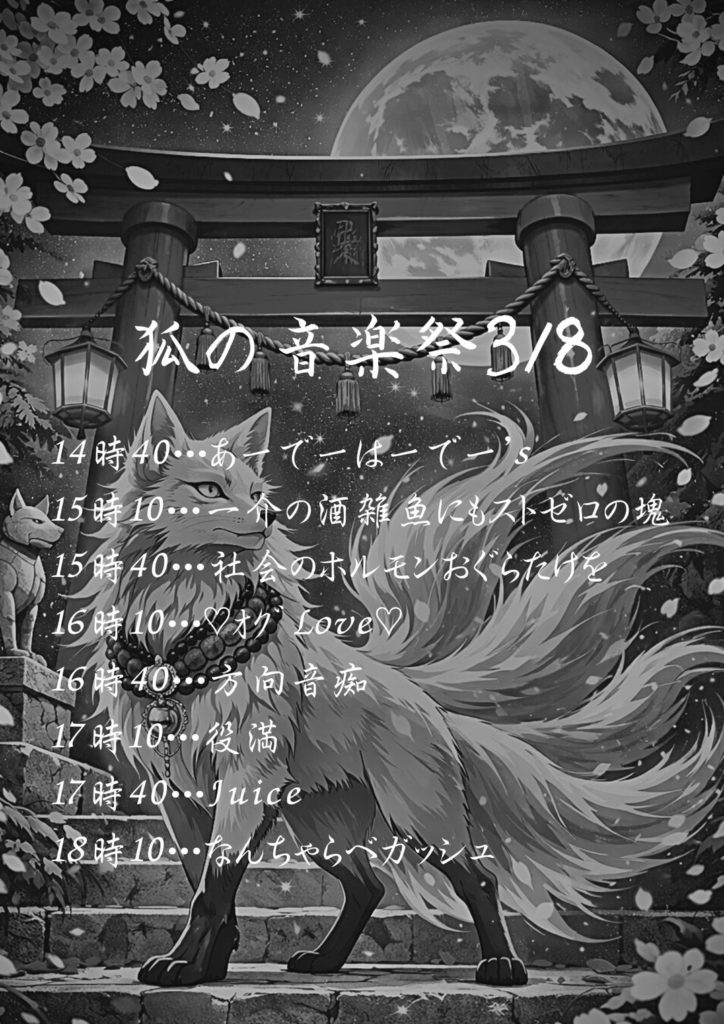 狐の音楽祭3/8
14時40…あーでーはーでー's
15時10…一介の酒雑魚にもストゼロの塊
15時40…社会のホルモンおぐらたけを
16時10…♡ｵｸ Love♡
16時40…方向音痴
17時10…役満
17時40…Juice
18時10…なんちゃらべガッシュ